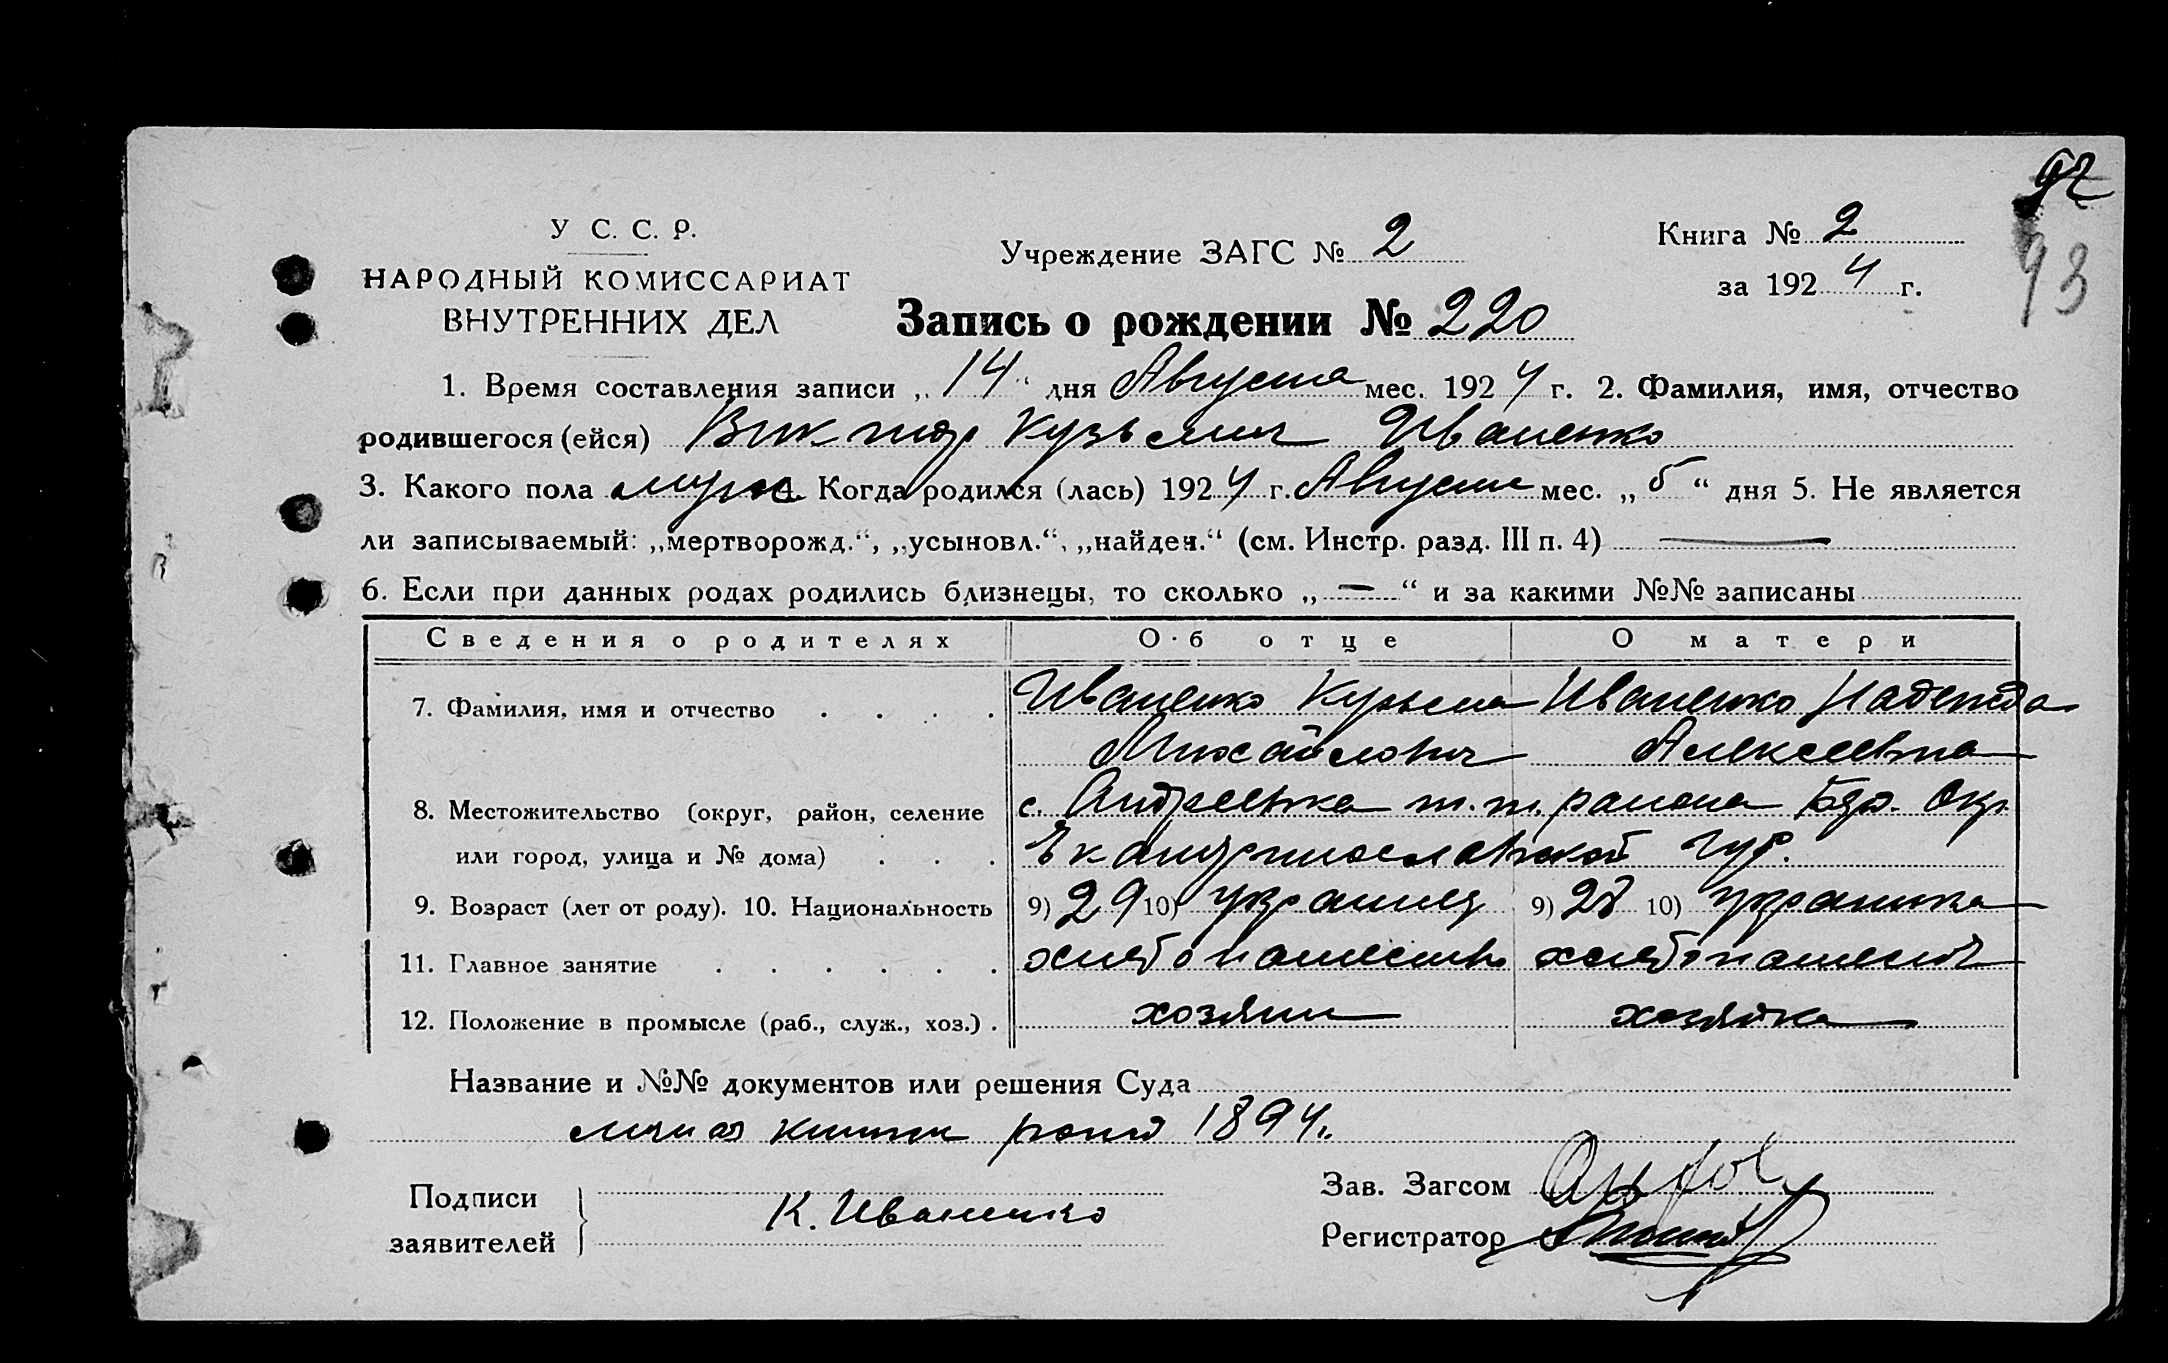 92
93
У С. С. Р.
НАРОДНЫЙ КОМИССАРИАТ
ВНУТРЕННИХ ДЕЛ
Учреждение ЗАГС № 2
Книга № 2
за 1924 г.
Запись о рождении № 220
1. Время составления записи „14“ дня Августа мес. 1924 г. 2. Фамилия, имя, отчество
родившегося (ейся) Виктор Кузьмич Иваненко
3. Какого пола муж 4. Когда родился (лась) 1924 г. Августа мес. „5“ дня 5. Не является
ли записываемый: „мертворожд.“, „усыновл.“, „найден.“ (см. Инстр. разд. III п. 4) —
6. Если при данных родах родились близнецы, то сколько „—“ и за какими №№ записаны
Сведения о родителях Об отце О матери
7. Фамилия, имя и отчество Иваненко Кузьма Иваненко Надежда
Михайлович Алексеевна
8. Местожительство (округ, район, селение с. Андреевка т.т. района Бер. Окр.
или город, улица и № дома) Екатеринославской губ.
9. Возраст (лет от роду). 10. Национальность 9) 29 10) украинец 9) 28 10) украинка
11. Главное занятие хлебопашество хлебопашество
12. Положение в промысле (раб., служ., хоз.) хозяин хозяйка
Название и №№ документов или решения Суда
1894.
Подписи
заявителей К. Иваненко
Зав. Загсом
Регистратор